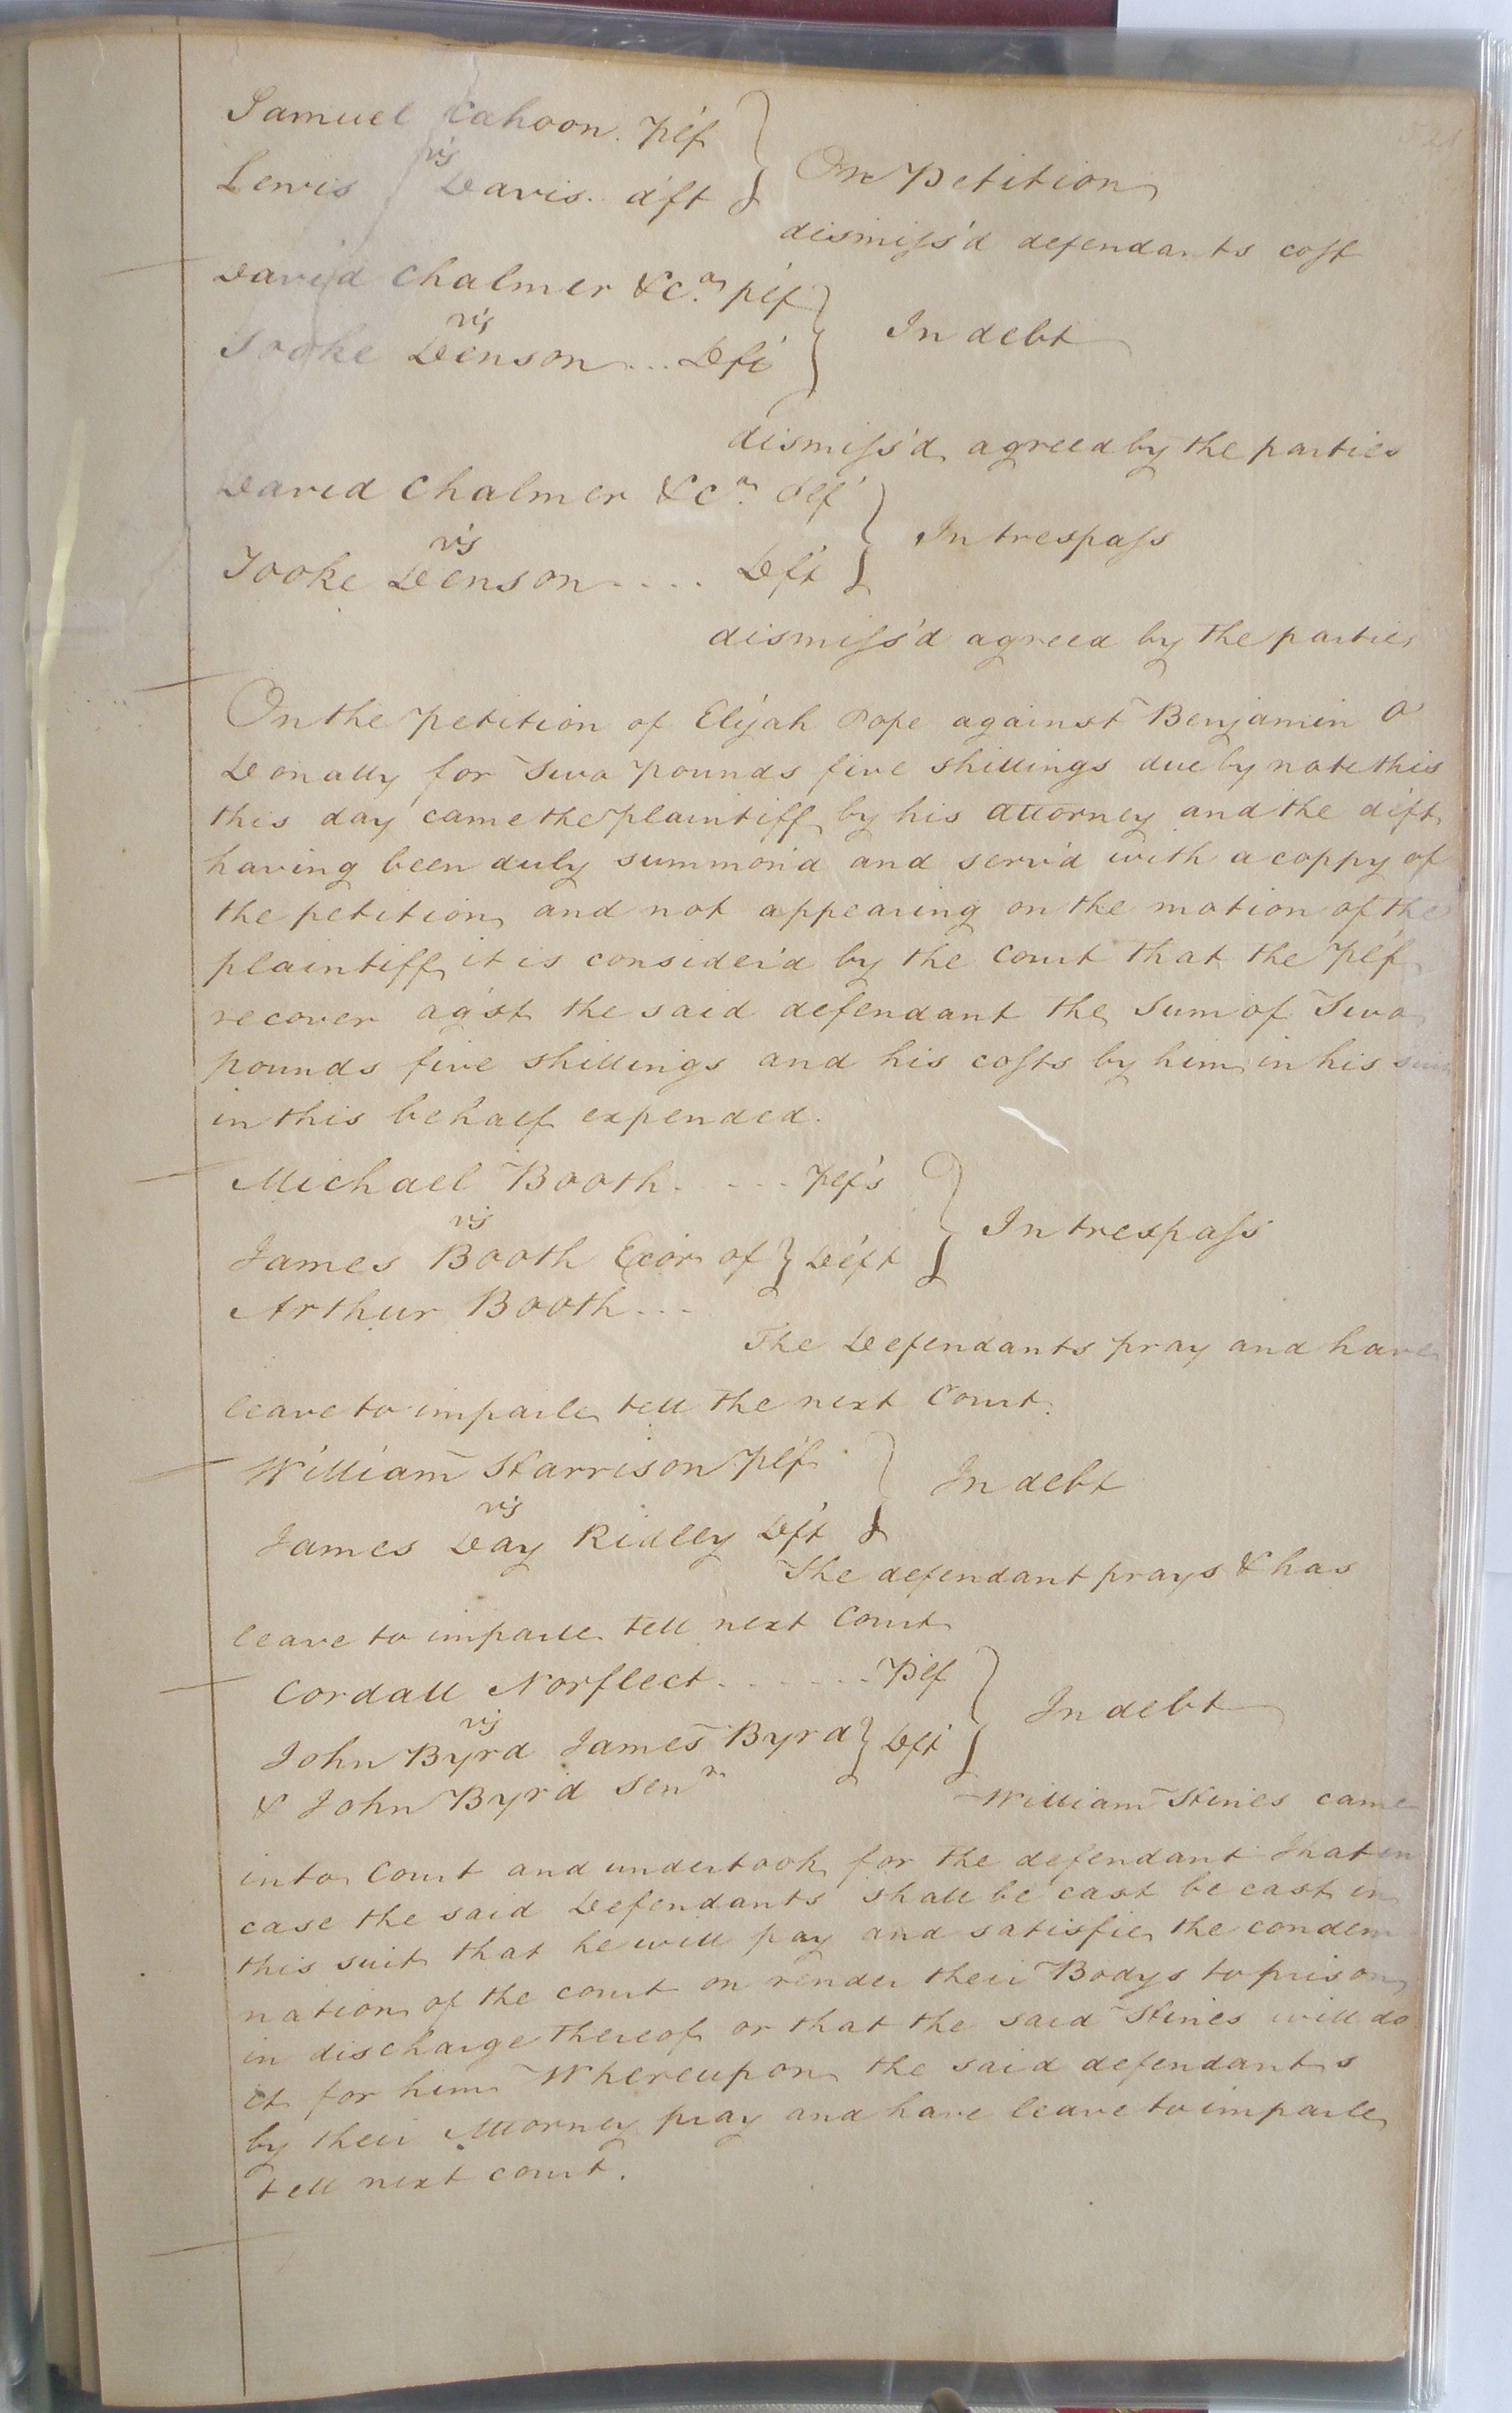 Samuel Cahoon. plf
vs
Lewis Davis. d'ft } On Petition
dismiss'd defendants cost
David Chalmer & Co. plf
vs
Tooke Denson... Dft } In debt
dismiss'd agreed by the parties
David Chalmer & Co. Plf
vs
Tooke Denson.... Dft } In trespass
dismiss'd agreed by the parties
On the petition of Elijah Pope against Benjamin O'
Donally for Two pounds five shillings due by note this
this day came the plaintiff by his attorney and the deft
having been duly summon'd and serv'd with a coppy of
the petition and not appearing on the motion of the
plaintiff it is consider'd by the Court that the plf
recover ag'st the said defendant the Sum of Two
pounds five shillings and his costs by him in his suit
in this behalf expended.
Michael Booth.... plf's
vs
James Booth Exor of } Deft } In trespass
Arthur Booth...
The Defendants pray and have
leave to imparle tell the next Court.
William Harrison plf
vs
James Day Ridley Dft } In debt
The defendant prays & has
leave to imparle tell next Court
Cordall Norfleet....... Plf
vs
John Byrd James Byrd } Dft } In debt
& John Byrd Senr
William Hines came
into Court and undertook for the defendant That in
case the said Defendants shall be cast be cast in
this suit that he will pay and satisfie the condem
nation of the court on render their Bodys to prison
in discharge thereof or that the said Hines will do
it for him Whereupon the said defendants
by their Attorney pray and have leave to imparle
tell next court.